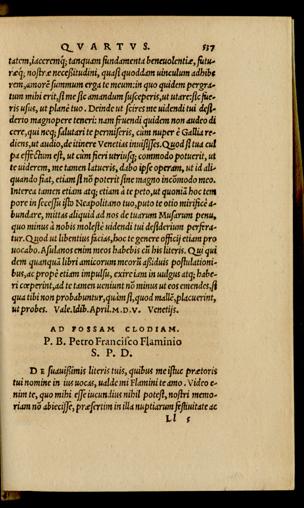 QVARTVS. 537
tatem, iaceremq́; tanquam fundamenta beneuolentiæ, futu-
ræq́, nostræ necessitudini, quasi quoddam uinculum adhibe
rem, amorẽ summum erga te meum: in quo quidem pergra-
tum mihi erit, si me sic amandum susceperis, ut utare: sic fue-
ris usus, ut planè tuo. Deinde ut scires me uidendi tui desi-
derio magnopere teneri: nam fruendi quidem non audeo di
cere, qui neq; salutari te permiseris, cum nuper è Gallia re-
diens, ut audio, de itinere Venetias inuisisses. Quod si tua cul
pa effectum est, ut cùm fieri utriusq; commodo potuerit, ut
te uiderem, me tamen latueris, dabo ipse operam, ut id ali-
quando fiat, etiam si nõ poterit sine magno incõmodo meo.
Interea tamen etiam atq; etiam à te peto, ut quoniã hoc tem
pore in secessu isto Neapolitano tuo, puto te otio mirificè a-
bundare, mittas aliquid ad nos de tuarum Musarum penu,
quo minus à nobis molestè uidendi tui desiderium perfera-
tur. Quod ut libentius facias, hoc te genere officij etiam pro
uocabo. Asulanos enim meos habebis cũ his literis. Qui qui
dem quanquã libri amicorum meorũ assiduis postulationi-
bus, ac propè etiam impulsu, exire iam in uulgus atq; habe-
ri cœperint, ad te tamen ueniunt nõ minus ut eos emendes, si
qua tibi non probabuntur, quàm si, quod mallẽ, placuerint,
ut probes. Vale. Idib. April. M. D. V. Venetijs.
AD FOSSAM CLODIAM.
P. B. Petro Francisco Flaminio
S. P. D.
DE suauissimis literis tuis, quibus me istuc prætoris
tui nomine in ius uocas, ualde mi Flamini te amo. Video e-
nim te, quo mihi esse iucundius nihil potest, nostri memo-
riam nõ abiecisse, præsertim in illa nuptiarum festiuitate ac
Ll 5